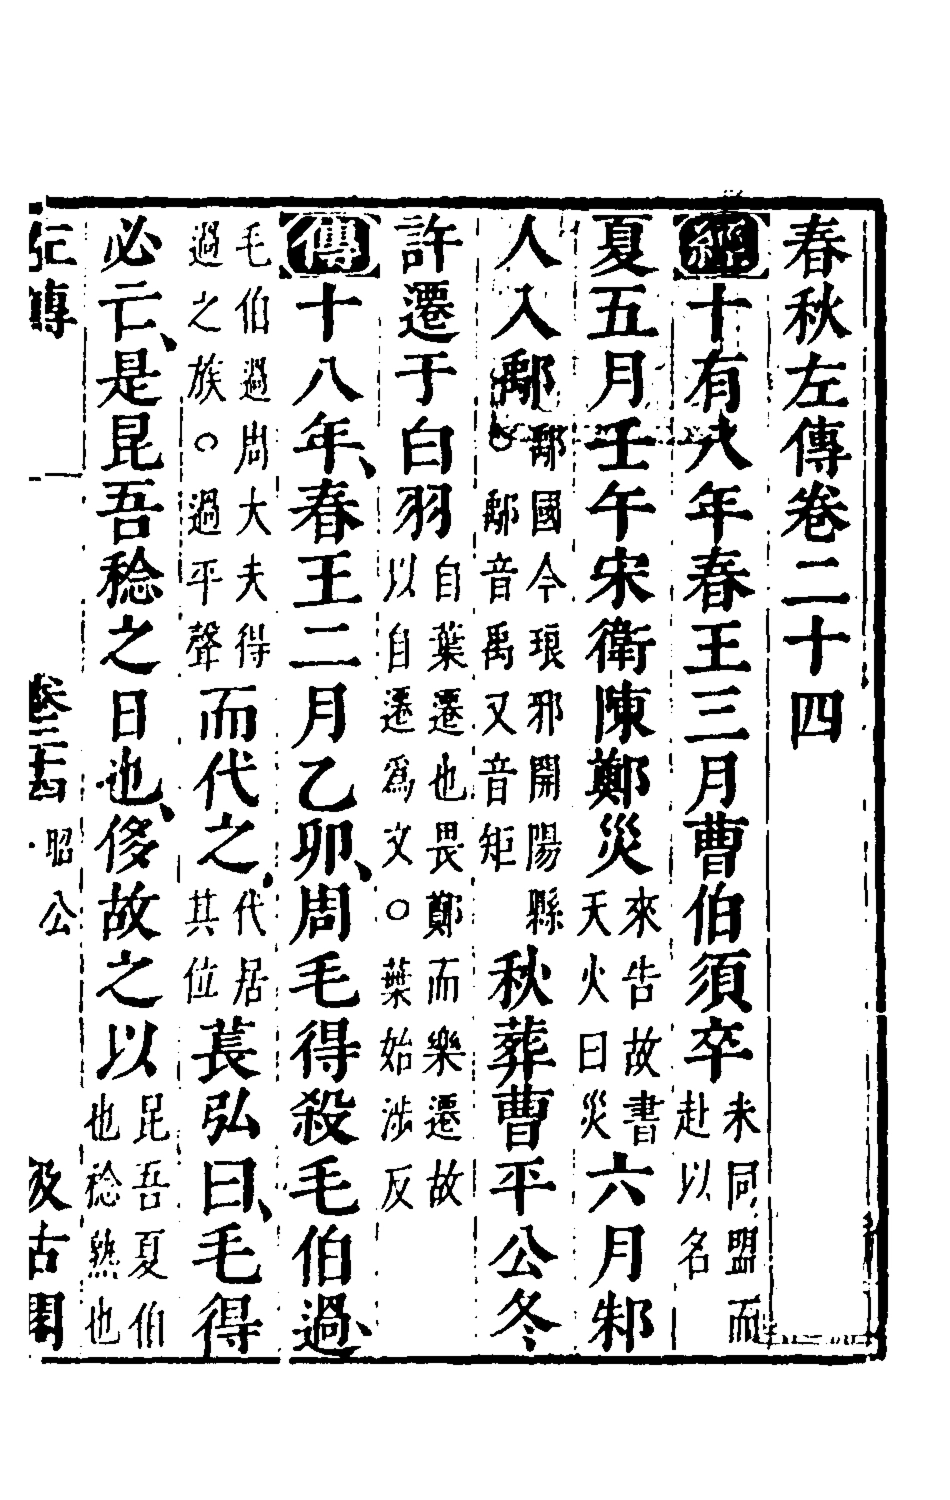 春秋左傳卷二十四
經十有八年春王三月曹伯須卒未同盟而赴以名
夏五月壬午宋衛陳鄭災來告故書天火曰災六月邾
人入鄅鄅國今琅邪開陽縣○鄅音禹又音矩秋葬曹平公冬
許遷于白羽自葉遷也畏鄭而樂遷故以自遷爲文○葉始涉反
傳十八年、春王二月乙卯、周毛得殺毛伯過、
毛伯過周大夫得過之族○過平聲而代之、代居其位萇弘曰、毛得
必亡、是昆吾稔之日也、侈故之以昆吾夏伯也稔熟也
左傳 卷二十四 昭公 汲古閣